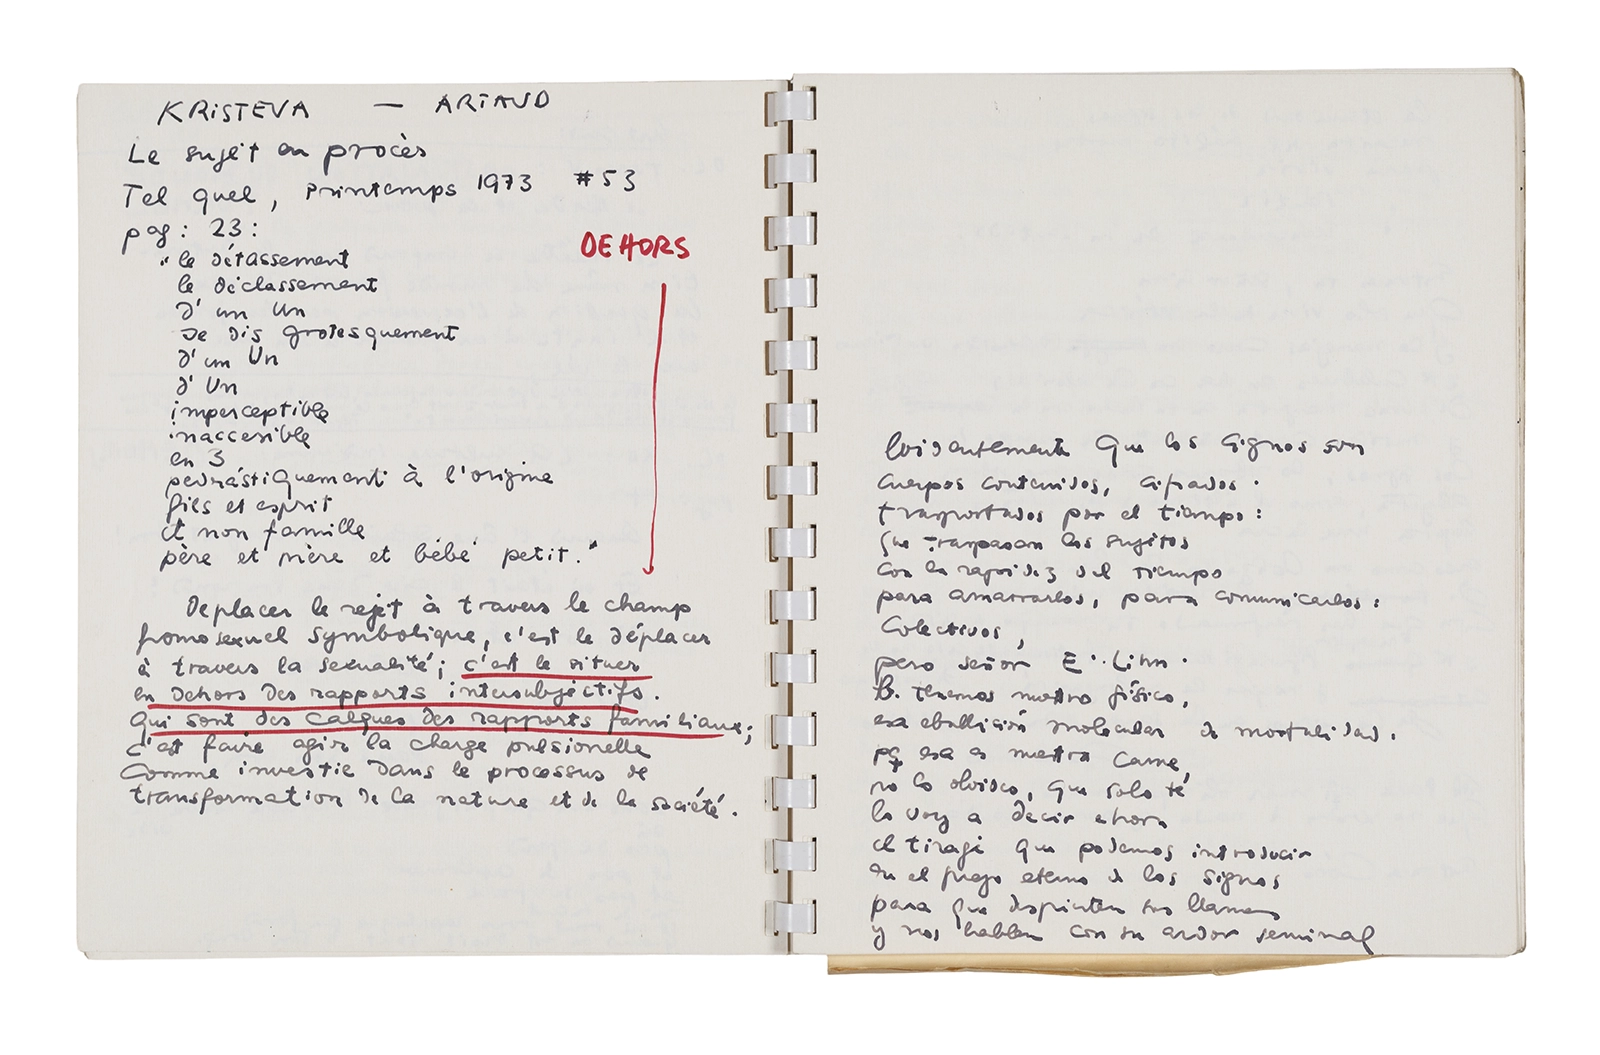 KRISTEVA — ARTAUD
Le sujet en procès
Tel quel, Printemps 1973 #53
pag: 23:
DEHORS
"le détassement
le déclassement
d'un Un
Je dis grotesquement
d'un Un
d'Un
imperceptible
inaccesible
en 3
pedrástiquement à l'origine
fils et esprit
et non famille
père et mère et bébé petit."
Deplacer le rejet à travers le champ
homosexuel symbolique, c'est le déplacer
à travers la sexualité; c'est le situer
en dehors des rapports intersubjectifs.
qui sont des calques des rapports familiaux;
c'est faire agir la charge pulsionelle
comme investie dans le processus de
transformation de la nature et de la société.
Evidentemente que los signos son
cuerpos contenidos, cifrados.
trasportados por el tiempo:
que traspasan los sujetos
con la rapidez del tiempo
para amarrarlos, para comunicarlos:
Colectivos,
pero señor E. Lihn.
B. tenemos nuestro físico,
esa ebullición molecular de mortalidad.
pq esa es nuestra carne,
no lo olvido, que solo té
lo voy a decir ahora
el tirage que podemos introducir
en el fuego eterno de los signos
para que despierten sus llamas
y nos hablen con su ardor seminal